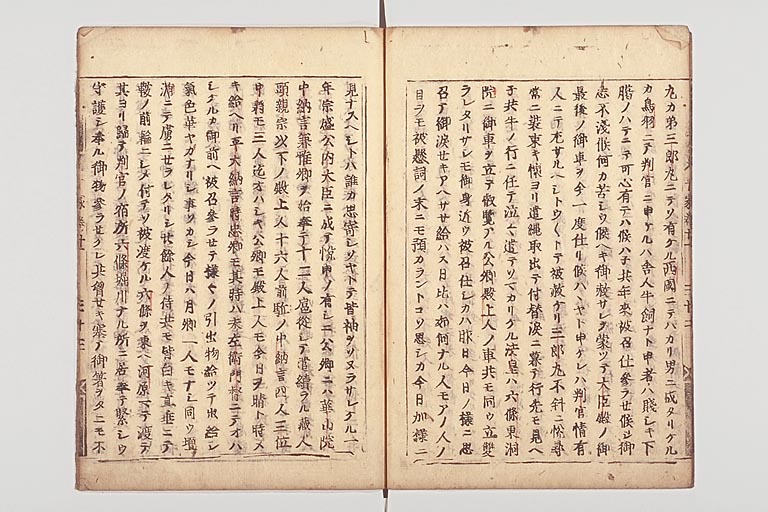 九カ弟三郎丸ニテソ有ケル西國ニテハカリ男ニ成タリケル
カ鳥羽ニテ判官ニ申ケルハ舎人牛飼ナト申者ハ賤シキ下
臈ノハテニテ可心有テハ候ハ子共年來被召仕參ラセ候シ御
志不淺候何カ苦シウ候ヘキ御赦サレヲ蒙テ大臣殿ノ御
最後ノ御車ヲ今一度仕リ候ハヽヤト申ケレハ判官情有
人ニテ尤サルヘシトウ〱トテ被赦ケリ三郎丸不斜ニ悦尋
常ニ裝束キ懷ヨリ遣繩取出テ付替涙ニ暮テ行先モ見ヘ
子共牛ノ行ニ任テ泣〻遣テソマカリケル法皇ハ六條東洞
院ニ御車ヲ立テ叡覽アル公卿殿上人ノ車共モ同ウ立雙
ラレタリサレモ御身近ウ被召仕シカハ昨日今日ノ樣ニ思
召テ御涙セキアヘサセ給ハス日比ハ如何ナル人モアノ人ノ
目ヲモ被懸詞ノ末ニモ預カラントコソ思シカ今日加樣ニ
見ナスヘシトハ誰カ思寄シソヤトテ皆袖ヲソヌラサレケル一
年宗盛公内大臣ニ成テ悦申ノ有シニ公卿ニハ華山院
中納言兼雅卿ヲ始奉テ十二人扈從シテ遣續ラル藏人
頭親宗以下ノ殿上人十六人前駈ノ中納言四人三位
中將モ三人迄オハシキ公卿モ殿上人モ今日ヲ晴ト時メ
キ給ヘリ平大納言時忠卿モ其時ハ未左衞門督ニテオハ
シケルカ御前ヘ被召參ラセテ樣〻ノ引出物給ツテ出給シ
氣色華ヤカナリシ事ソカシ今日ハ月卿一人モナシ同ウ壇
浦ニテ虜ニセラレタリシ侍共モ皆白キ直垂ニテ
鞍ノ前輪ニシメ付テソ被渡ケル六條ヲ東ヘ河原マテ渡テ
其ヨリ歸テ判官ノ宿所六條堀川ナル所ニ居奉テ緊シウ
守護シ奉ル御物參ラセケレ共胸セキ塞テ御箸ヲタニモ不